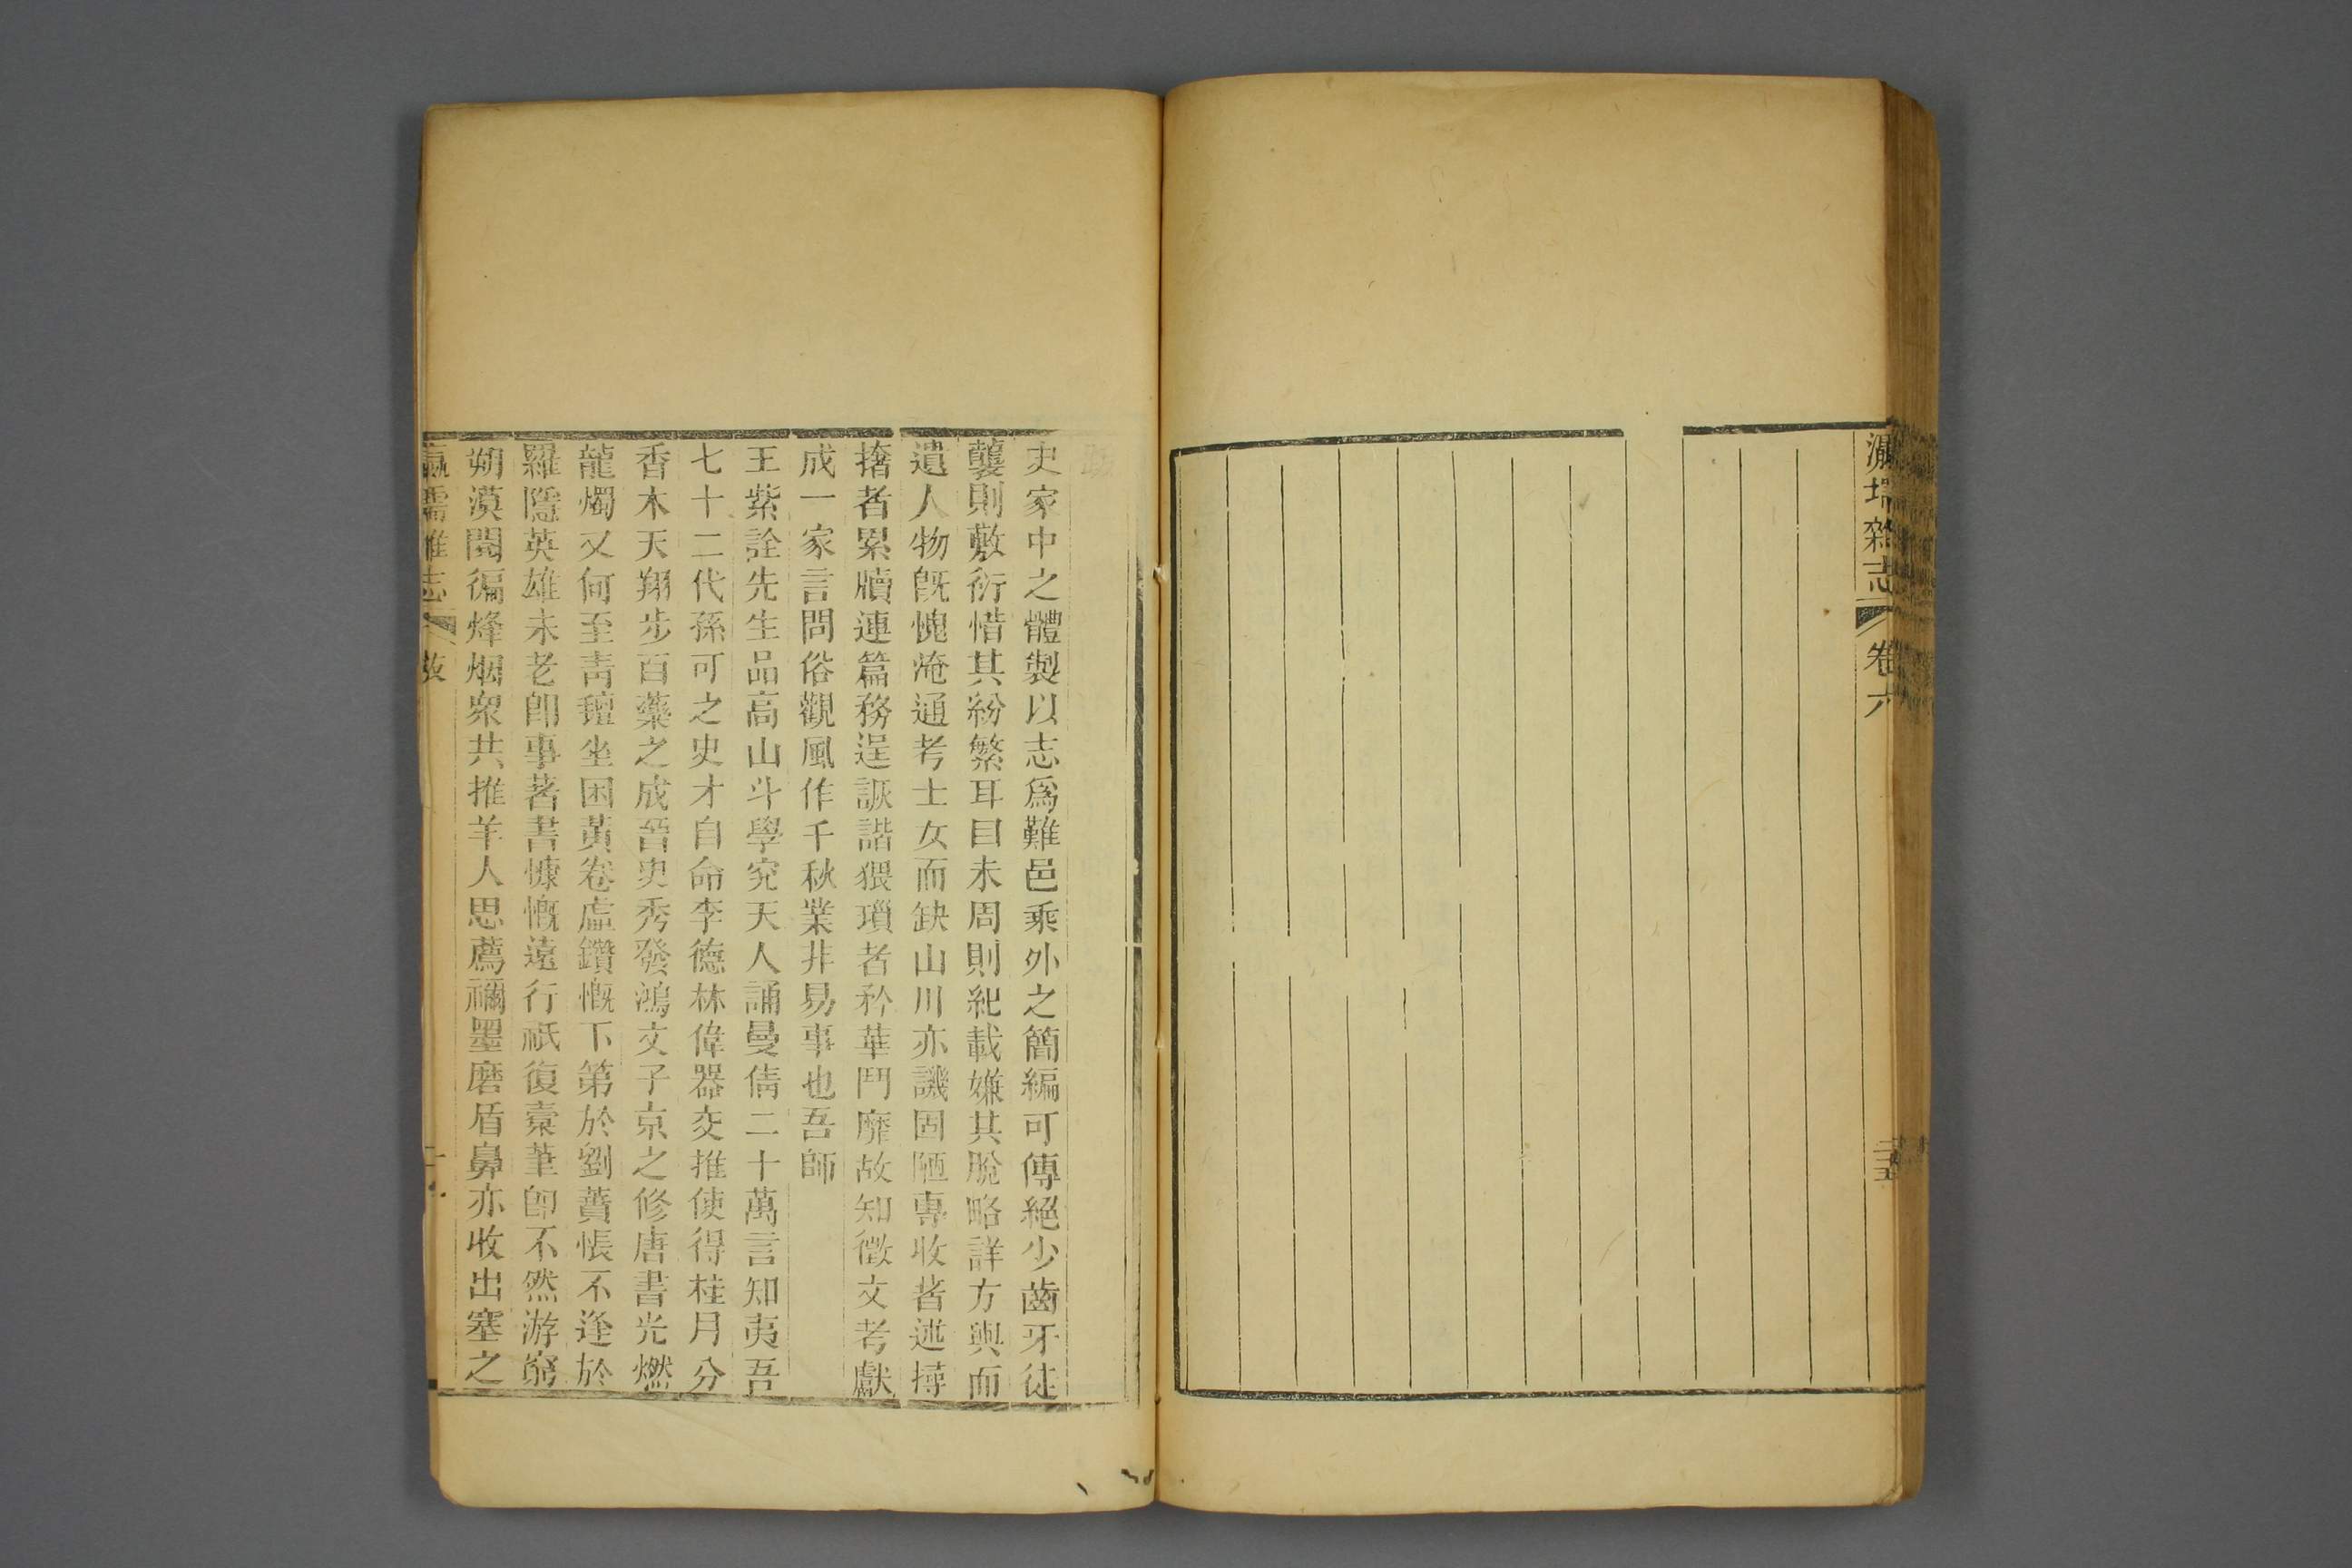 瀛壖雜志
卷六
三十五
跋
史家中之體製以志爲難邑乘外之簡編可傳絕少齒牙徒
襲則敷衍惜其紛繁耳目未周則紀載嫌其脫略詳方輿而
遺人物旣愧淹通考士女而缺山川亦譏固陋專收者述撏
撦者累牘連篇務逞詼諧猥瑣者矜華鬥靡故知徵文考獻
成一家言問俗觀風作千秋業非易事也吾師
王紫詮先生品高山斗學究天人誦曼倩二十萬言知夷吾
七十二代孫可之史才自命李德林偉器交推使得桂月分
香木天翔步百藥之成晉史秀發鴻文子京之修唐書光燃
龍燭又何至靑氊坐困黃卷虛鑽慨下第於劉蕡悵不逢於
羅隱英雄未老卽事著書慷慨遠行祇復槖筆卽不然游窮
朔漠閱徧烽烟衆共推羊人思薦禰墨磨盾鼻亦收出塞之
瀛壖雜志
跋